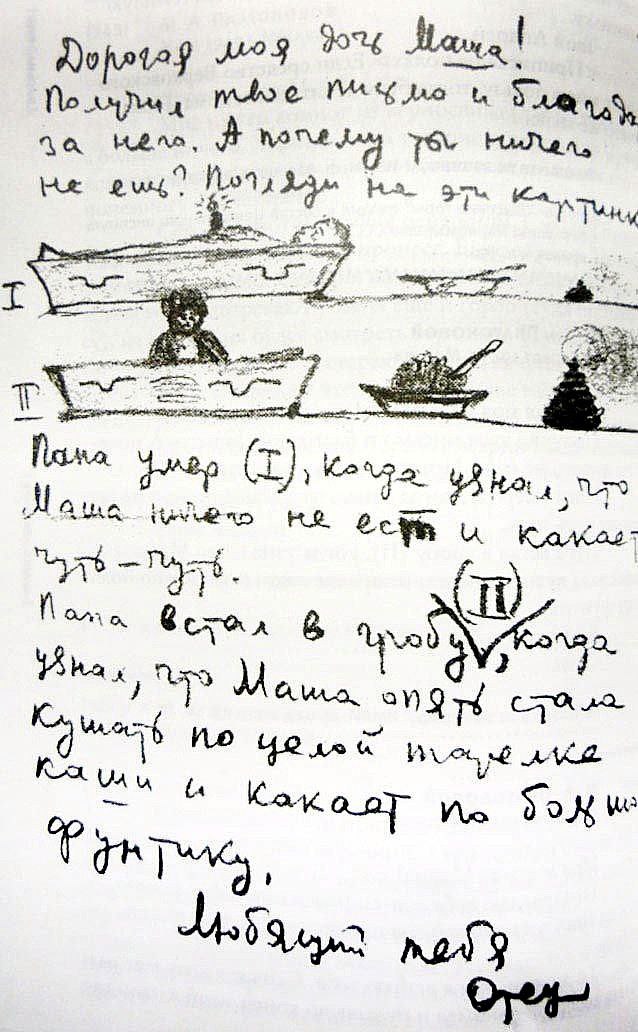 Дорогая моя дочь Маша!
Получил твое письмо и благода
за него. А почему ты ничего
не ешь? Погляди на эти картинк
I
II
Папа умер (I), когда узнал, что
Маша ничего не ест и какает
чуть-чуть.
(II)
Папа встал в гробу, когда
узнал, что Маша опять стала
кушать по целой тарелке
каши и какает по
фунтику.
Любящий тебя
Отец